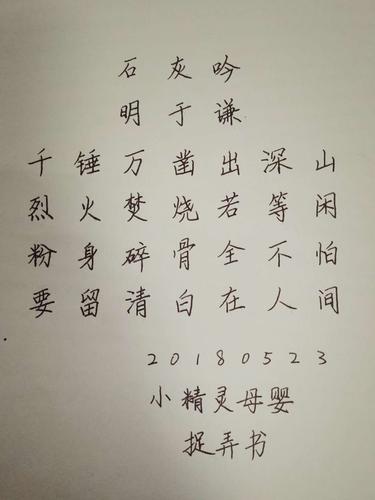 石灰吟
明于谦
千锤万凿出深山
烈火焚烧若等闲
粉身碎骨全不怕
要留清白在人间
20180523
小精灵母婴
捉弄书